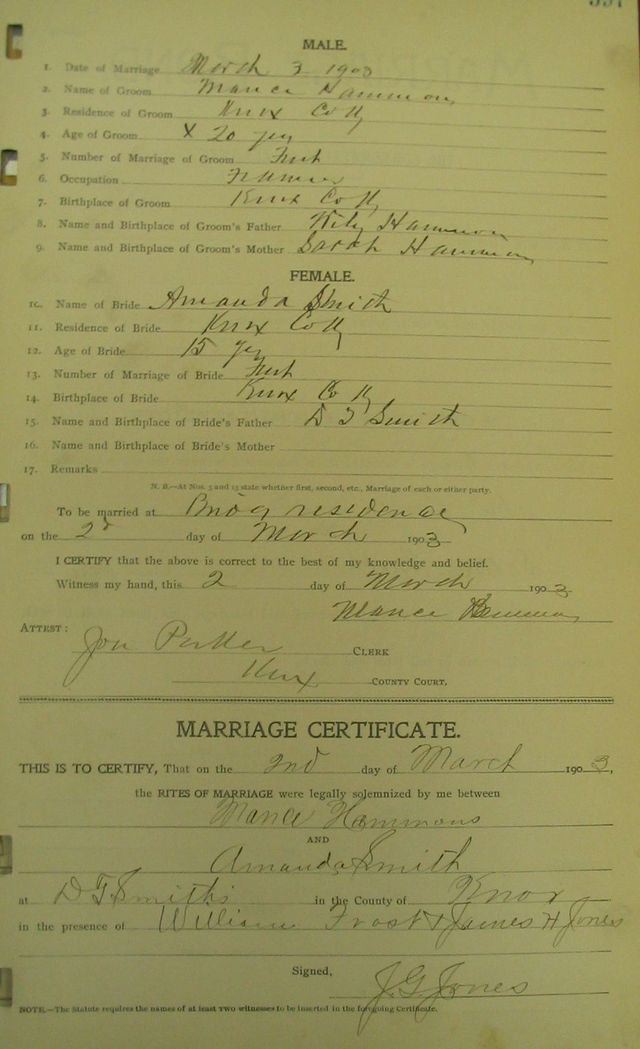 MALE.
1. Date of Marriage March 3 1903
2. Name of Groom Mance Hammons
3. Residence of Groom Knox Co Ky
4. Age of Groom X 20 yrs
5. Number of Marriage of Groom First
6. Occupation Farmer
7. Birthplace of Groom Knox Co Ky
8. Name and Birthplace of Groom's Father Wily Hammon
9. Name and Birthplace of Groom's Mother Sarah Hammon
FEMALE.
10. Name of Bride Amanda Smith
11. Residence of Bride Knox Co Ky
12. Age of Bride 15 yrs
13. Number of Marriage of Bride First
14. Birthplace of Bride Knox Co Ky
15. Name and Birthplace of Bride's Father D T Smith
16. Name and Birthplace of Bride's Mother
17. Remarks
N. B.—At Nos. 5 and 13 state whether first, second, etc., Marriage of each or either party.
To be married at residence
on the 2d day of March 1903
I CERTIFY that the above is correct to the best of my knowledge and belief.
Witness my hand, this 2 day of March 1903
Mance Hammons
ATTEST:
Jon Parker CLERK
Knox COUNTY COURT.
MARRIAGE CERTIFICATE.
THIS IS TO CERTIFY, That on the 2nd day of March 1903,
the RITES OF MARRIAGE were legally solemnized by me between
Mance Hammons
AND
Amanda Smith
at D T Smith's in the County of Knox
in the presence of William Frost & James H Jones
Signed,
J. G. Jones
NOTE.—The Statute requires the names of at least two witnesses to be inserted in the foregoing Certificate.